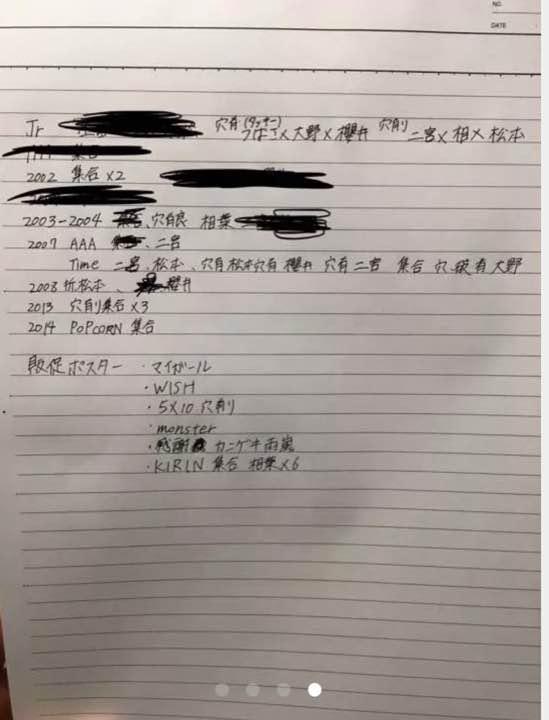 NO.
DATE
Jr 穴有(タッキー)つばさ×大野×櫻井 穴削 二宮×相×松本
集合
2002 集合×2
2003-2004 、穴有 相葉
2007 AAA 、二宮
Time 二宮、松本、穴有松本穴有櫻井 穴有二宮 集合 穴 有大野
2008 松本、櫻井
2013 穴削集合×3
2014 POPCORN 集合
販促ポスター ・マイガール
・WISH
・5×10 穴削り
・monster
・カンゲキ雨嵐
・KIRIN 集合 相葉×6